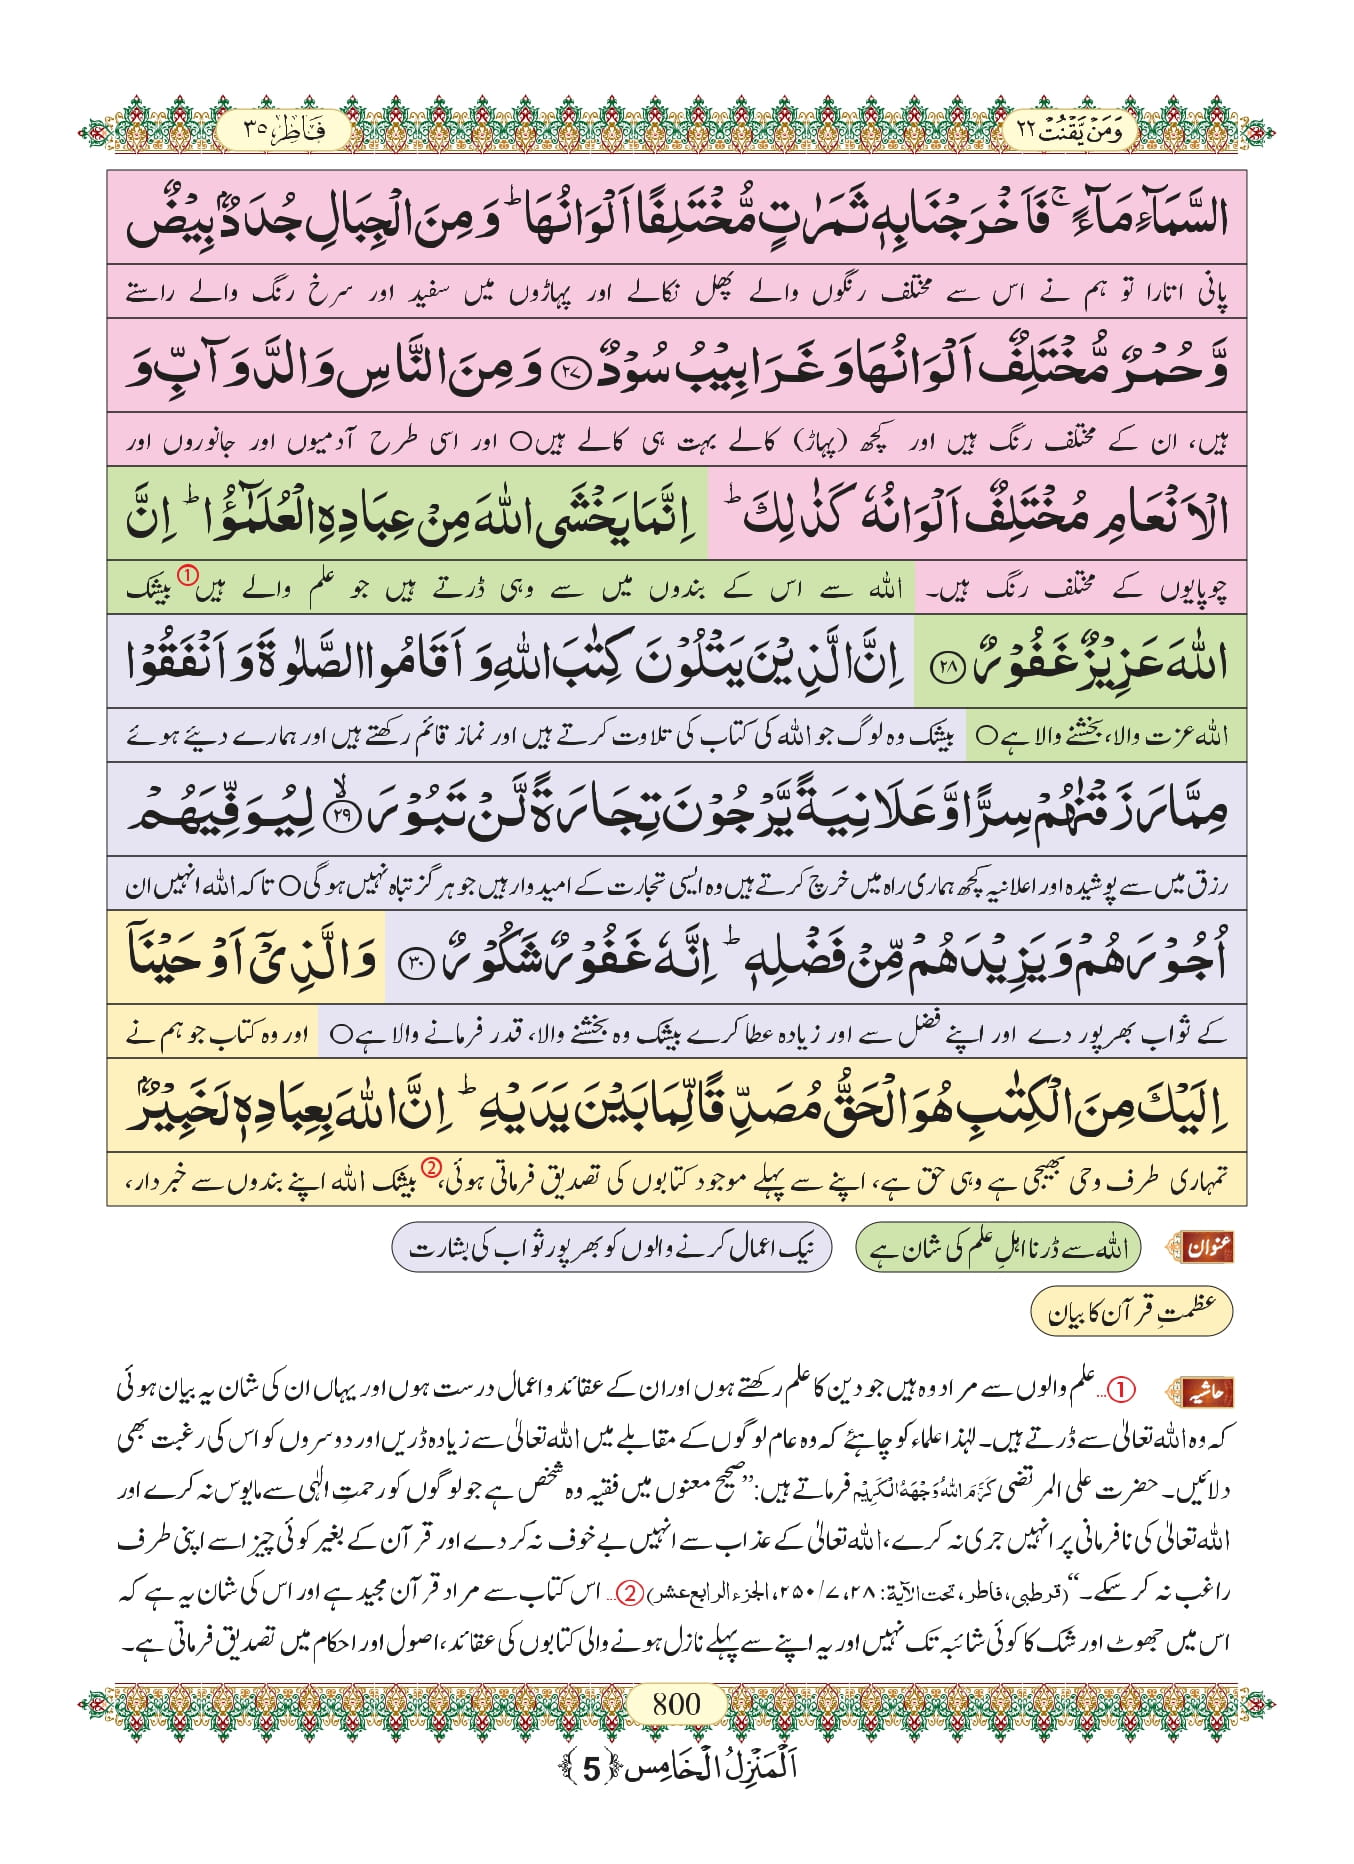 وَمَنْ یَّقْنُتْ ۲۲
فَاطِر ۳۵
السَّمَآءِ مَآءً ۚ فَاَخْرَجْنَا بِهٖ ثَمَرٰتٍ مُّخْتَلِفًا اَلْوَانُهَا ؕ وَ مِنَ الْجِبَالِ جُدَدٌۢ بِیْضٌ
پانی اتارا تو ہم نے اس سے مختلف رنگوں والے پھل نکالے اور پہاڑوں میں سفید اور سرخ رنگ والے راستے
وَّ حُمْرٌ مُّخْتَلِفٌ اَلْوَانُهَا وَ غَرَابِیْبُ سُوْدٌ ﴿۲۷﴾ وَ مِنَ النَّاسِ وَ الدَّوَآبِّ وَ
ہیں، ان کے مختلف رنگ ہیں اور کچھ (پہاڑ) کالے بہت ہی کالے ہیں○ اور اسی طرح آدمیوں اور جانوروں اور
الْاَنْعَامِ مُخْتَلِفٌ اَلْوَانُهٗ كَذٰلِكَ ؕ اِنَّمَا یَخْشَى اللّٰهَ مِنْ عِبَادِهِ الْعُلَمٰٓؤُا ؕ اِنَّ
چوپایوں کے مختلف رنگ ہیں۔ اللہ سے اس کے بندوں میں سے وہی ڈرتے ہیں جو علم والے ہیں① بیشک
اللّٰهَ عَزِیْزٌ غَفُوْرٌ ﴿۲۸﴾ اِنَّ الَّذِیْنَ یَتْلُوْنَ كِتٰبَ اللّٰهِ وَ اَقَامُوا الصَّلٰوةَ وَ اَنْفَقُوْا
اللہ عزت والا، بخشنے والا ہے○ بیشک وہ لوگ جو اللہ کی کتاب کی تلاوت کرتے ہیں اور نماز قائم رکھتے ہیں اور ہمارے دیئے ہوئے
مِمَّا رَزَقْنٰهُمْ سِرًّا وَّ عَلَانِیَةً یَّرْجُوْنَ تِجَارَةً لَّنْ تَبُوْرَ ﴿ۙ۲۹﴾ لِیُوَفِّیَهُمْ
رزق میں سے پوشیدہ اور اعلانیہ کچھ ہماری راہ میں خرچ کرتے ہیں وہ ایسی تجارت کے امیدوار ہیں جو ہرگز تباہ نہیں ہوگی○ تاکہ اللہ انہیں ان
اُجُوْرَهُمْ وَ یَزِیْدَهُمْ مِّنْ فَضْلِهٖ ؕ اِنَّهٗ غَفُوْرٌ شَكُوْرٌ ﴿۳۰﴾ وَ الَّذِیْۤ اَوْحَیْنَاۤ
کے ثواب بھرپور دے اور اپنے فضل سے اور زیادہ عطا کرے بیشک وہ بخشنے والا، قدر فرمانے والا ہے○ اور وہ کتاب جو ہم نے
اِلَیْكَ مِنَ الْكِتٰبِ هُوَ الْحَقُّ مُصَدِّقًا لِّمَا بَیْنَ یَدَیْهِ ؕ اِنَّ اللّٰهَ بِعِبَادِهٖ لَخَبِیْرٌۢ
تمہاری طرف وحی بھیجی ہے وہی حق ہے، اپنے سے پہلے موجود کتابوں کی تصدیق فرماتی ہوئی،② بیشک اللہ اپنے بندوں سے خبردار،
عنوان اللہ سے ڈرنا اہلِ علم کی شان ہے نیک اعمال کرنے والوں کو بھرپور ثواب کی بشارت
عظمتِ قرآن کا بیان
حاشیہ ①…علم والوں سے مراد وہ ہیں جو دین کا علم رکھتے ہوں اور ان کے عقائد و اعمال درست ہوں اور یہاں ان کی شان یہ بیان ہوئی
کہ وہ اللہ تعالیٰ سے ڈرتے ہیں۔ لہٰذا علماء کو چاہئے کہ وہ عام لوگوں کے مقابلے میں اللہ تعالیٰ سے زیادہ ڈریں اور دوسروں کو اس کی رغبت بھی
دلائیں۔ حضرت علی المرتضی کَرَّمَ اللہُ وَجْہَہُ الْکَرِیْم فرماتے ہیں: ”صحیح معنوں میں فقیہ وہ شخص ہے جو لوگوں کو رحمتِ الٰہی سے مایوس نہ کرے اور
اللہ تعالیٰ کی نافرمانی پر انہیں جری نہ کرے، اللہ تعالیٰ کے عذاب سے انہیں بے خوف نہ کر دے اور قرآن کے بغیر کوئی چیز اسے اپنی طرف
راغب نہ کر سکے۔“ (قرطبی، فاطر، تحت الآیۃ: ۲۸، ۷/۲۵۰، الجزء الرابع عشر) ②… اس کتاب سے مراد قرآن مجید ہے اور اس کی شان یہ ہے کہ
اس میں جھوٹ اور شک کا کوئی شائبہ تک نہیں اور یہ اپنے سے پہلے نازل ہونے والی کتابوں کی عقائد، اصول اور احکام میں تصدیق فرماتی ہے۔
800
اَلْمَنْزِلُ الْخَامِس ﴿5﴾